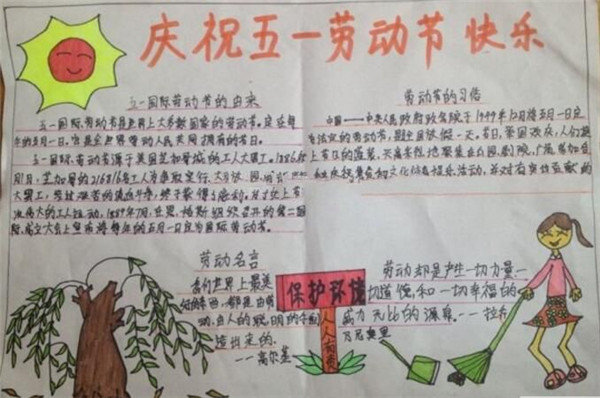 庆祝五一劳动节快乐
五一国际劳动节的由来
五一国际劳动节是世界上大多数国家的劳动节。定在每
年的五月一日。它是全世界劳动人民共同拥有的节日。
五一国际劳动节源于美国芝加哥城的工人大罢工。1886年
5月1日，芝加哥的216816名工人为争取实行
大罢工，经过艰苦的流血斗争，终于获得了胜利。为了纪念
伟大的工人运动，1889年7月，恩格斯组织召开的第二国
际成立大会上宣布将每年的五月一日定为国际劳动节。
劳动节的习俗
中国——中央人民政府政务院于1949年12月将五月一日定
为法定的劳动节，放假一天。节日，举国欢庆，人们换
上节日的盛装，兴高采烈地聚集在公园、剧院、广场，参加各
种庆祝集会和文化体育娱乐活动，并对有突出贡献的
劳动名言
我们世界上最美
好的东西，都是由劳
动、由人的聪明的手创
造出来的。
——高尔基
保护环境
人人有责
劳动却是产生一切力量、一
切道德和一切幸福的
威力无比的源泉。——拉·乔
乃尼奥里